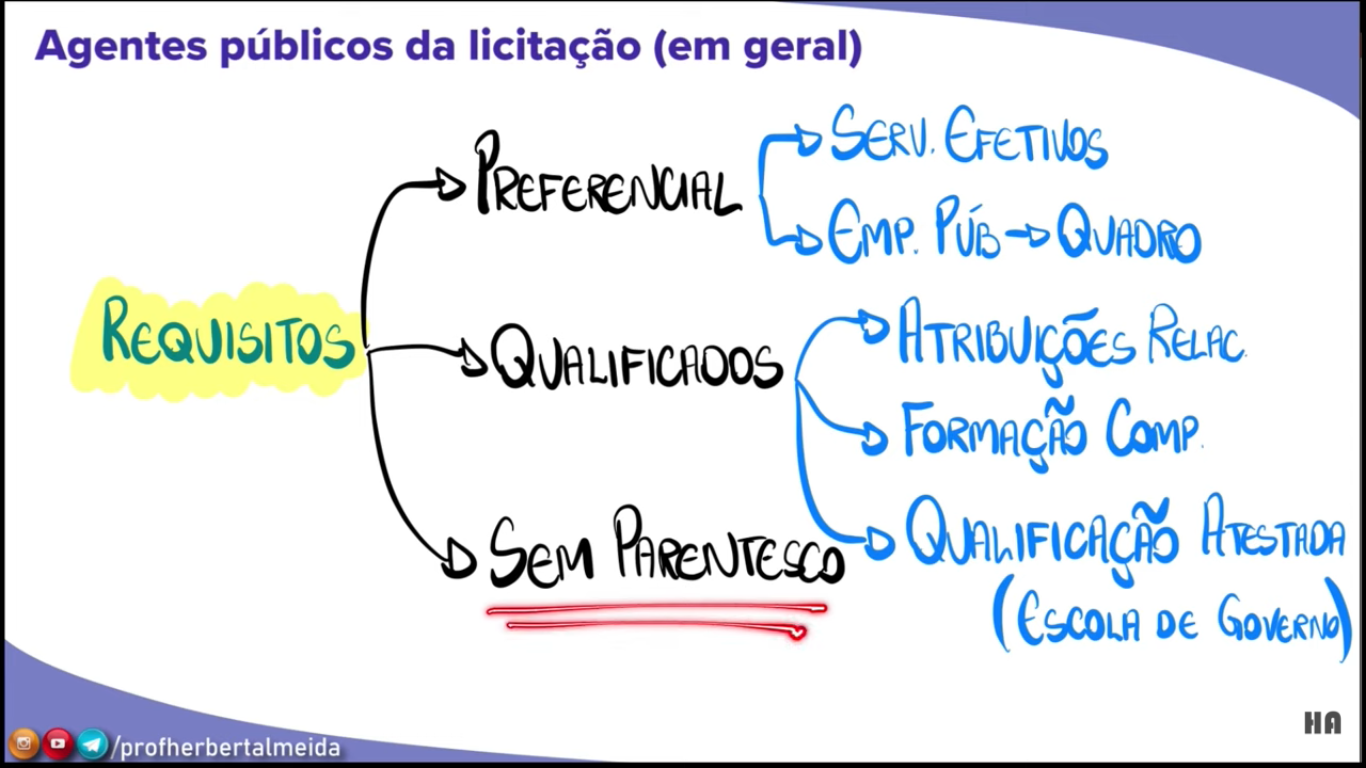 Agentes públicos da licitação (em geral)
REQUISITOS
PREFERENCIAL
SERV. EFETIVOS
EMP. PÚB → QUADRO
QUALIFICADOS
ATRIBUIÇÕES RELAC.
FORMAÇÃO COMP.
QUALIFICAÇÃO ATESTADA
(ESCOLA DE GOVERNO)
SEM PARENTESCO
/profherbertalmeida
HA